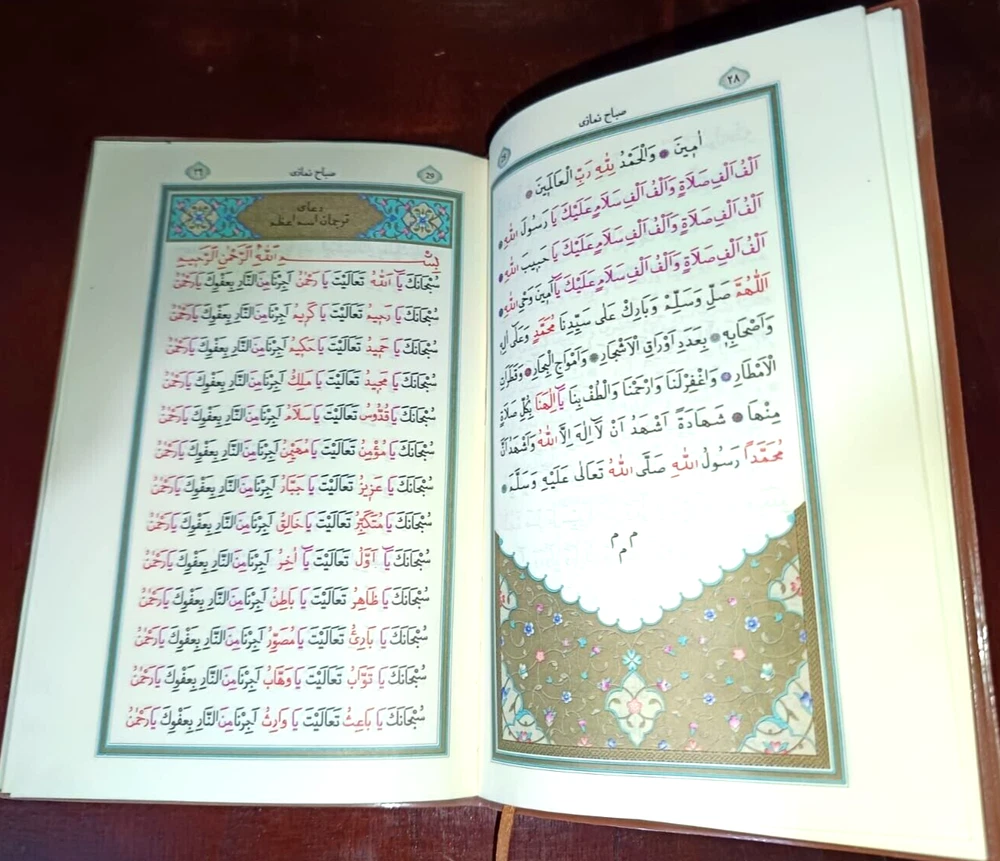 ٢٨
صباح نمازى
اٰمٖينَ ❁ وَالْحَمْدُ لِلّٰهِ رَبِّ الْعَالَمٖينَ ❁
اَلْفُ اَلْفِ صَلَاةٍ وَاَلْفُ اَلْفِ سَلَامٍ عَلَيْكَ يَا رَسُولَ اللّٰهِ ❁
اَلْفُ اَلْفِ صَلَاةٍ وَاَلْفُ اَلْفِ سَلَامٍ عَلَيْكَ يَا حَبٖيبَ اللّٰهِ ❁
اَلْفُ اَلْفِ صَلَاةٍ وَاَلْفُ اَلْفِ سَلَامٍ عَلَيْكَ يَٓا اَمٖينَ وَحْىِ اللّٰهِ ❁
اَللّٰهُمَّ صَلِّ وَسَلِّمْ وَبَارِكْ عَلٰى سَيِّدِنَا مُحَمَّدٍ وَعَلٰٓى اٰلِهٖ
وَاَصْحَابِهٖ ❁ بِعَدَدِ اَوْرَاقِ الْاَشْجَارِ ❁ وَاَمْوَاجِ الْبِحَارِ ❁ وَقَطَرَاتِ
الْاَمْطَارِ ❁ وَاغْفِرْلَنَا وَارْحَمْنَا وَالْطُفْ بِنَا يَٓا اِلٰهَنَا بِكُلِّ صَلَاةٍ
مِنْهَا ❁ شَهَادَةً اَشْهَدُ اَنْ لَٓا اِلٰهَ اِلَّا اللّٰهُ وَاَشْهَدُ اَنَّ
مُحَمَّدًا رَسُولُ اللّٰهِ صَلَّى اللّٰهُ تَعَالٰى عَلَيْهِ وَسَلَّمَ ❁
م م م
29 صباح نمازى ٢٩
دعاى
ترجمان اسم اعظم
بِسْمِ اللّٰهِ الرَّحْمٰنِ الرَّحٖيمِ
سُبْحَانَكَ يَٓا اَللّٰهُ تَعَالَيْتَ يَا رَحْمٰنُ اَجِرْنَا مِنَ النَّارِ بِعَفْوِكَ يَا رَحْمٰنُ
سُبْحَانَكَ يَا رَحٖيمُ تَعَالَيْتَ يَا كَرٖيمُ اَجِرْنَا مِنَ النَّارِ بِعَفْوِكَ يَا رَحْمٰنُ
سُبْحَانَكَ يَا حَمٖيدُ تَعَالَيْتَ يَا حَكٖيمُ اَجِرْنَا مِنَ النَّارِ بِعَفْوِكَ يَا رَحْمٰنُ
سُبْحَانَكَ يَا مَجٖيدُ تَعَالَيْتَ يَا مَلِكُ اَجِرْنَا مِنَ النَّارِ بِعَفْوِكَ يَا رَحْمٰنُ
سُبْحَانَكَ يَا قُدُّوسُ تَعَالَيْتَ يَا سَلَامُ اَجِرْنَا مِنَ النَّارِ بِعَفْوِكَ يَا رَحْمٰنُ
سُبْحَانَكَ يَا مُؤْمِنُ تَعَالَيْتَ يَا مُهَيْمِنُ اَجِرْنَا مِنَ النَّارِ بِعَفْوِكَ يَا رَحْمٰنُ
سُبْحَانَكَ يَا عَزٖيزُ تَعَالَيْتَ يَا جَبَّارُ اَجِرْنَا مِنَ النَّارِ بِعَفْوِكَ يَا رَحْمٰنُ
سُبْحَانَكَ يَا مُتَكَبِّرُ تَعَالَيْتَ يَا خَالِقُ اَجِرْنَا مِنَ النَّارِ بِعَفْوِكَ يَا رَحْمٰنُ
سُبْحَانَكَ يَٓا اَوَّلُ تَعَالَيْتَ يَٓا اٰخِرُ اَجِرْنَا مِنَ النَّارِ بِعَفْوِكَ يَا رَحْمٰنُ
سُبْحَانَكَ يَا ظَاهِرُ تَعَالَيْتَ يَا بَاطِنُ اَجِرْنَا مِنَ النَّارِ بِعَفْوِكَ يَا رَحْمٰنُ
سُبْحَانَكَ يَا بَارِئُ تَعَالَيْتَ يَا مُصَوِّرُ اَجِرْنَا مِنَ النَّارِ بِعَفْوِكَ يَا رَحْمٰنُ
سُبْحَانَكَ يَا تَوَّابُ تَعَالَيْتَ يَا وَهَّابُ اَجِرْنَا مِنَ النَّارِ بِعَفْوِكَ يَا رَحْمٰنُ
سُبْحَانَكَ يَا بَاعِثُ تَعَالَيْتَ يَا وَارِثُ اَجِرْنَا مِنَ النَّارِ بِعَفْوِكَ يَا رَحْمٰنُ